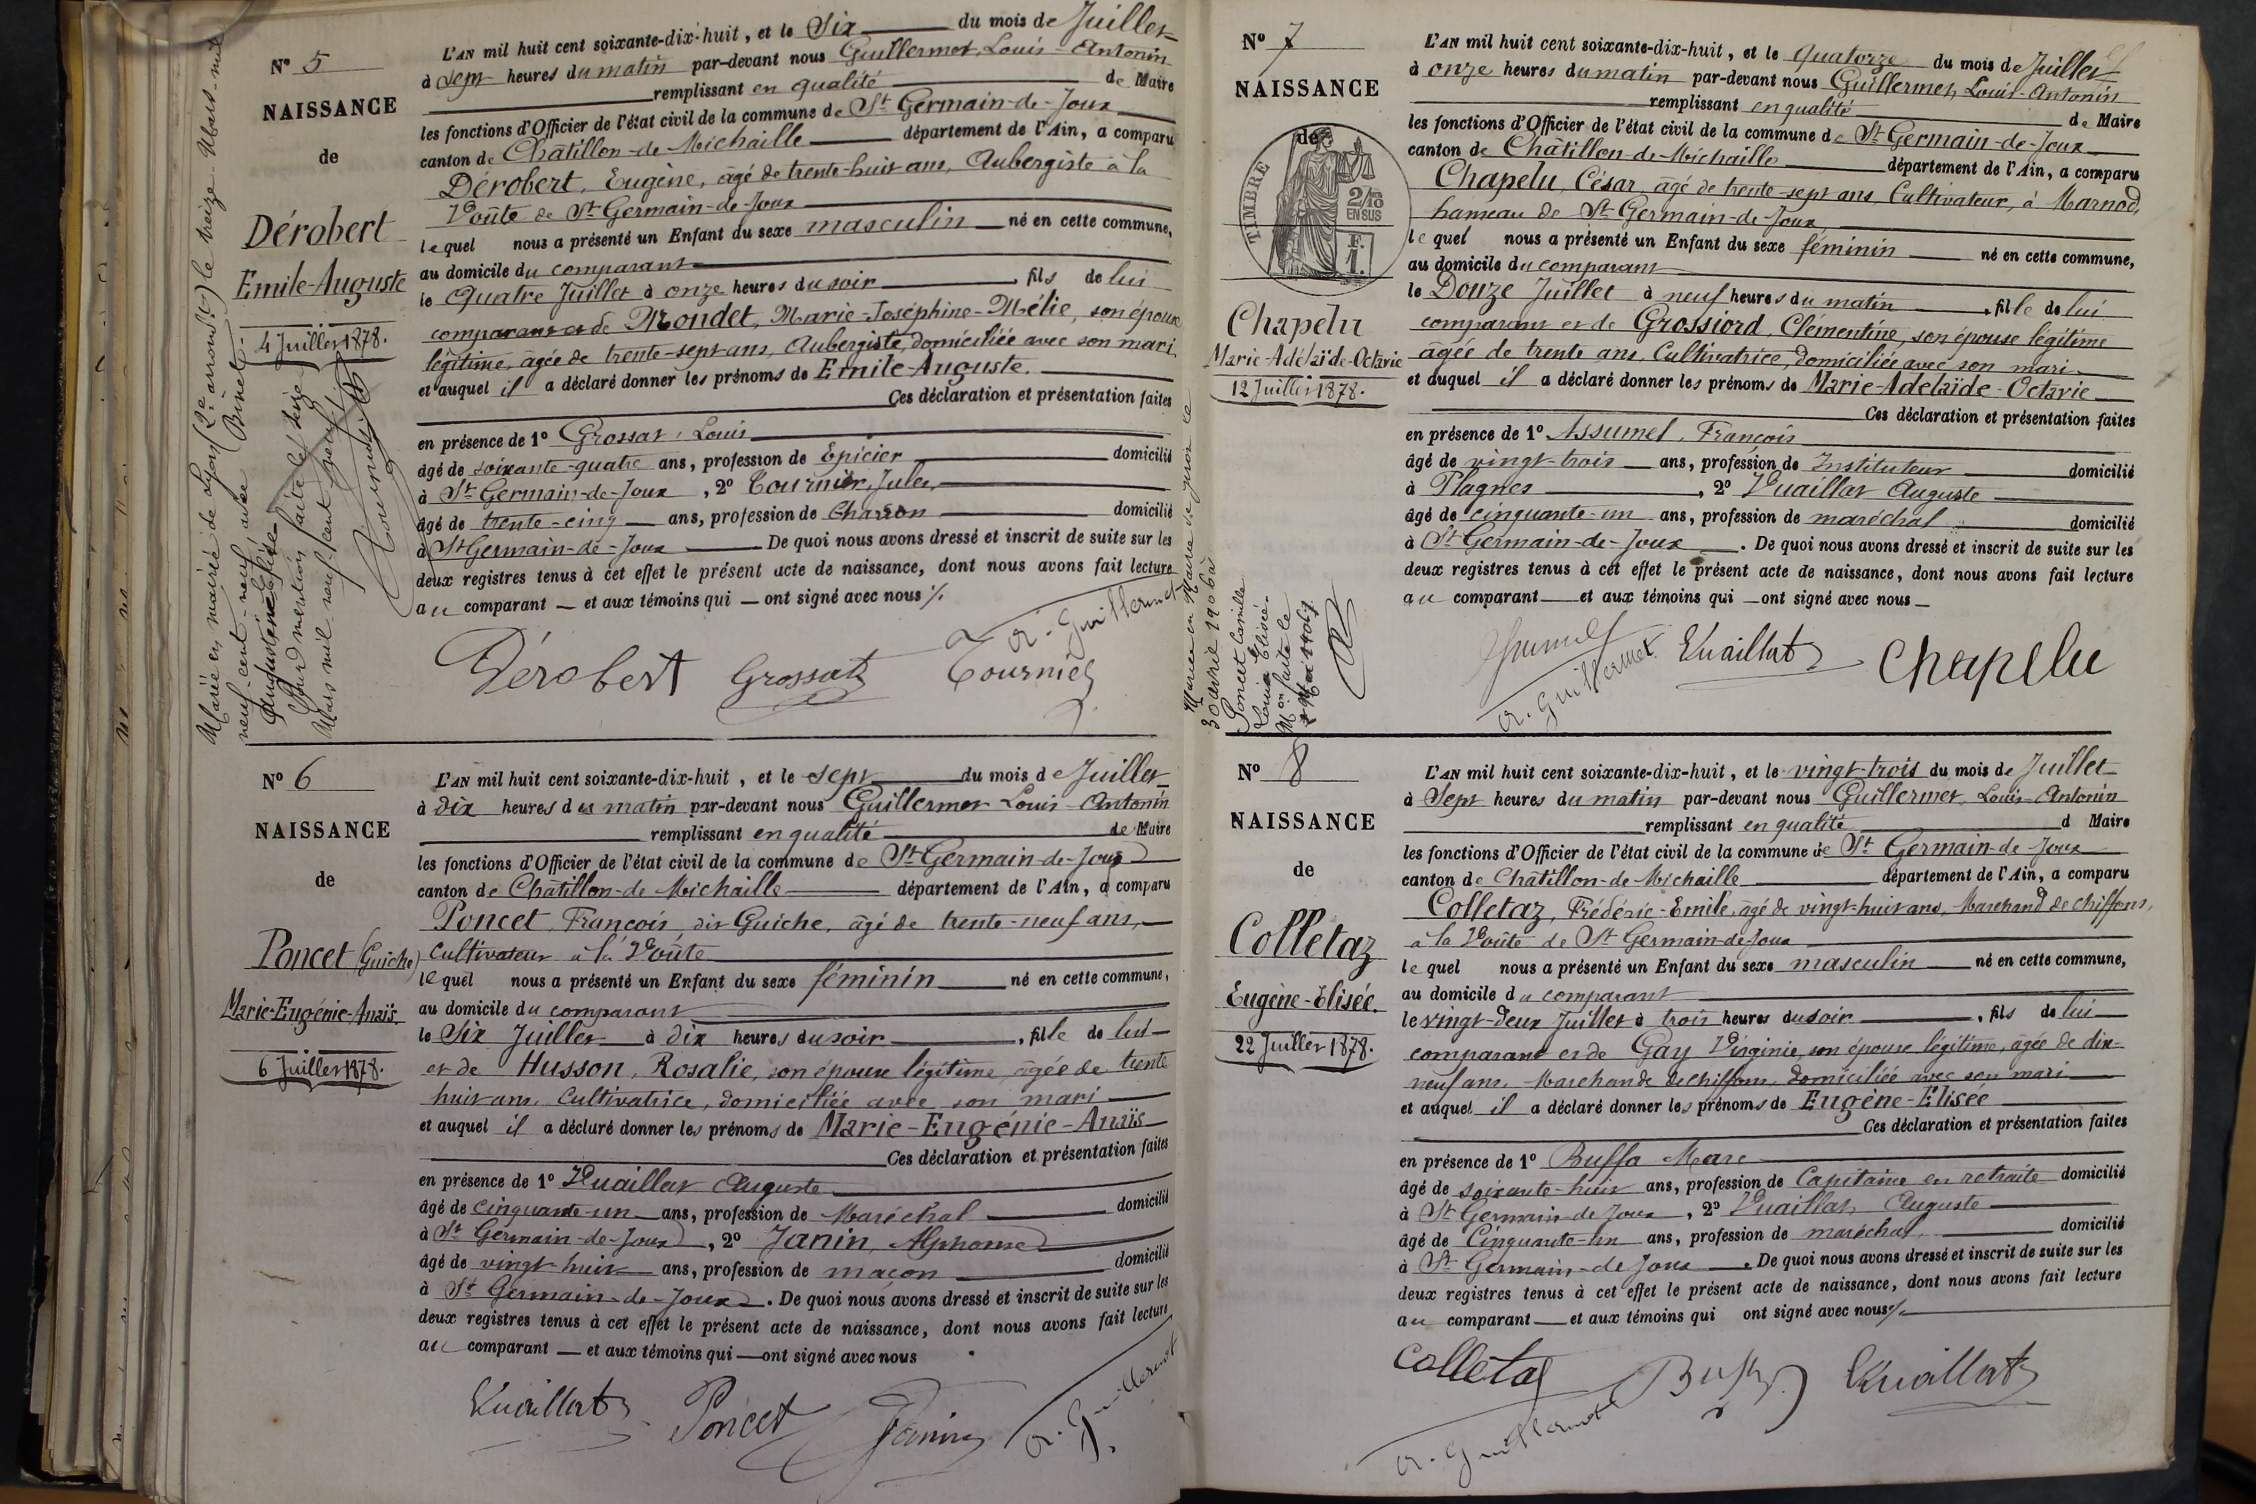 N° 5
NAISSANCE
de
Dérobert
Emile-Auguste
4 Juillet 1878.
Marié en mairie de Lyon (2e arrond.t) le treize Mars mil
neuf-cent-neuf, avec Binet
Mars mil neuf cent neuf
L'AN mil huit cent soixante-dix-huit, et le Six du mois de Juillet
à sept heures du matin par-devant nous Guillermet, Louis-Antonin
remplissant en qualité de Maire
les fonctions d'Officier de l'état civil de la commune de St Germain-de-Joux
canton de Châtillon-de-Michaille département de l'Ain, a comparu
Dérobert, Eugène, âgé de trente-huit ans, Aubergiste à la
Voûte de St Germain-de-Joux
lequel nous a présenté un Enfant du sexe masculin né en cette commune,
au domicile du comparant
le Quatre Juillet à onze heures du soir, fils de lui
comparant et de Mondet, Marie-Joséphine-Mélie, son épouse
légitime, âgée de trente-sept ans, Aubergiste, domiciliée avec son mari,
et auquel il a déclaré donner les prénoms de Emile-Auguste.
Ces déclaration et présentation faites
en présence de 1° Grossat, Louis
âgé de soixante-quatre ans, profession de Epicier domicilié
à St Germain-de-Joux, 2° Tournier, Jules,
âgé de trente-cinq ans, profession de Charron domicilié
à St Germain-de-Joux De quoi nous avons dressé et inscrit de suite sur les
deux registres tenus à cet effet le présent acte de naissance, dont nous avons fait lecture
au comparant et aux témoins qui ont signé avec nous
Dérobert Grossat Tournier A. Guillermet
N° 6
NAISSANCE
de
Poncet (Guiche)
Marie-Eugénie-Anaïs.
6 Juillet 1878.
L'AN mil huit cent soixante-dix-huit, et le sept du mois de Juillet
à dix heures des matin par-devant nous Guillermet Louis-Antonin
remplissant en qualité de Maire
les fonctions d'Officier de l'état civil de la commune de St Germain-de-Joux
canton de Châtillon-de-Michaille département de l'Ain, a comparu
Poncet, François, dit Guiche, âgé de trente-neuf ans,
Cultivateur à la Voûte
lequel nous a présenté un Enfant du sexe féminin né en cette commune,
au domicile du comparant
le Six Juillet à dix heures du soir, fille de lui
et de Husson, Rosalie, son épouse légitime, âgée de trente
huit ans, Cultivatrice, domiciliée avec son mari
et auquel il a déclaré donner les prénoms de Marie-Eugénie-Anaïs
Ces déclaration et présentation faites
en présence de 1° Vuaillat Auguste
âgé de cinquante-un ans, profession de Maréchal domicilié
à St Germain-de-Joux, 2° Janin, Alphonse
âgé de vingt-huit ans, profession de maçon domicilié
à St Germain-de-Joux. De quoi nous avons dressé et inscrit de suite sur les
deux registres tenus à cet effet le présent acte de naissance, dont nous avons fait lecture
au comparant et aux témoins qui ont signé avec nous
Vuaillat Poncet Janin A. Guillermet
N° 7
NAISSANCE
de
TIMBRE
2/10 EN SUS
F. 1.
Chapelu
Marie-Adélaïde-Octavie
12 Juillet 1878.
Mariée en Mairie de Giron le
30 avril 1906 à
Poncet Camille
Louis Elisée.
Mon faite le
L'AN mil huit cent soixante-dix-huit, et le quatorze du mois de Juillet
à onze heures du matin par-devant nous Guillermet, Louis-Antonin
remplissant en qualité de Maire
les fonctions d'Officier de l'état civil de la commune de St Germain-de-Joux
canton de Châtillon-de-Michaille département de l'Ain, a comparu
Chapelu, César, âgé de trente-sept ans, Cultivateur, à Marnod,
hameau de St Germain-de-Joux
lequel nous a présenté un Enfant du sexe féminin né en cette commune,
au domicile du comparant
le Douze Juillet à neuf heures du matin, fille de lui
comparant et de Grossiord, Clémentine, son épouse légitime
âgée de trente ans, Cultivatrice, domiciliée avec son mari
et auquel il a déclaré donner les prénoms de Marie-Adelaïde-Octavie
Ces déclaration et présentation faites
en présence de 1° Assumel, François
âgé de vingt-trois ans, profession de Instituteur domicilié
à Plagnes, 2° Vuaillat Auguste
âgé de cinquante-un ans, profession de maréchal domicilié
à St Germain-de-Joux. De quoi nous avons dressé et inscrit de suite sur les
deux registres tenus à cet effet le présent acte de naissance, dont nous avons fait lecture
au comparant et aux témoins qui ont signé avec nous
A. Guillermet Vuaillat Chapelu
N° 8
NAISSANCE
de
Colletaz
Eugène-Elisée.
22 Juillet 1878.
L'AN mil huit cent soixante-dix-huit, et le vingt-trois du mois de Juillet
à Sept heures du matin par-devant nous Guillermet, Louis-Antonin
remplissant en qualité d Maire
les fonctions d'Officier de l'état civil de la commune de St Germain-de-Joux
canton de Châtillon-de-Michaille département de l'Ain, a comparu
Colletaz, Frédéric-Emile, âgé de vingt-huit ans, Marchand de chiffons,
à la Voûte de St Germain-de-Joux
lequel nous a présenté un Enfant du sexe masculin né en cette commune,
au domicile du comparant
le vingt-deux Juillet à trois heures du soir, fils de lui
comparant et de Gay Virginie, son épouse légitime, âgée de dix-
neuf ans, Marchande de chiffons, domiciliée avec son mari
et auquel il a déclaré donner les prénoms de Eugène-Elisée
Ces déclaration et présentation faites
en présence de 1° Buffa Marc
âgé de soixante-huit ans, profession de Capitaine en retraite domicilié
à St Germain-de-Joux, 2° Vuaillat, Auguste
âgé de Cinquante-un ans, profession de maréchal, domicilié
à St Germain-de-Joux. De quoi nous avons dressé et inscrit de suite sur les
deux registres tenus à cet effet le présent acte de naissance, dont nous avons fait lecture
au comparant et aux témoins qui ont signé avec nous
Colletaz Buffa Vuaillat
A. Guillermet